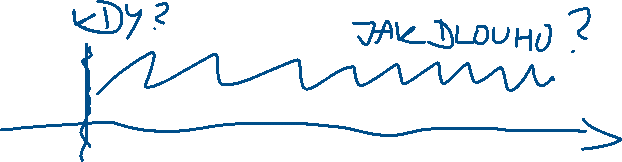 KDY?
JAK DLOUHO?